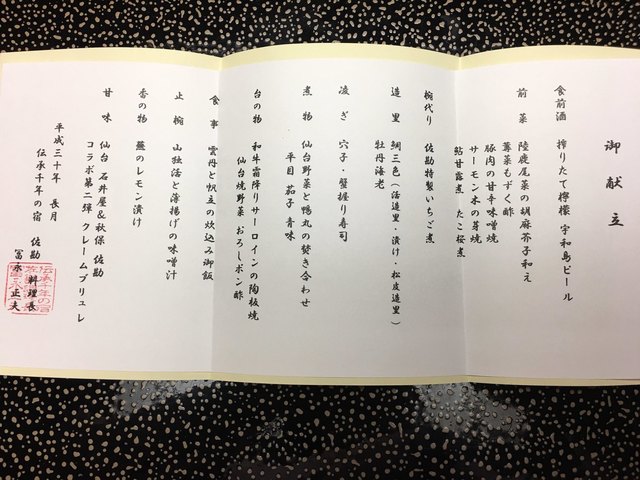 御献立
食前酒 搾りたて檸檬 宇和島ビール
前菜 陸鹿尾菜の胡麻芥子和え
蓴菜もずく酢
豚肉の甘辛味噌焼
サーモン木の芽焼
鮎甘露煮 たこ桜煮
椀代り 佐勘特製いちご煮
造里 鯛三色（活造里・漬け・松皮造里）
牡丹海老
凌ぎ 穴子・蟹握り寿司
煮物 仙台野菜と鴨丸の焚き合わせ
平目 茄子 青味
台の物 和牛霜降りサーロインの陶板焼
仙台焼野菜 おろしポン酢
食事 雲丹と帆立の炊込み御飯
止椀 山独活と薄揚げの味噌汁
香の物 蕪のレモン漬け
甘味 仙台 石井屋＆秋保 佐勘
コラボ第二弾 クレームブリュレ
平成三十年 長月
伝承千年の宿 佐勘
料理長
冨永 正夫